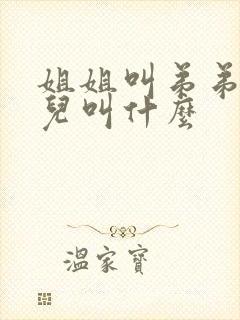 姐姐叫弟弟
兒叫什麼
溫家寶